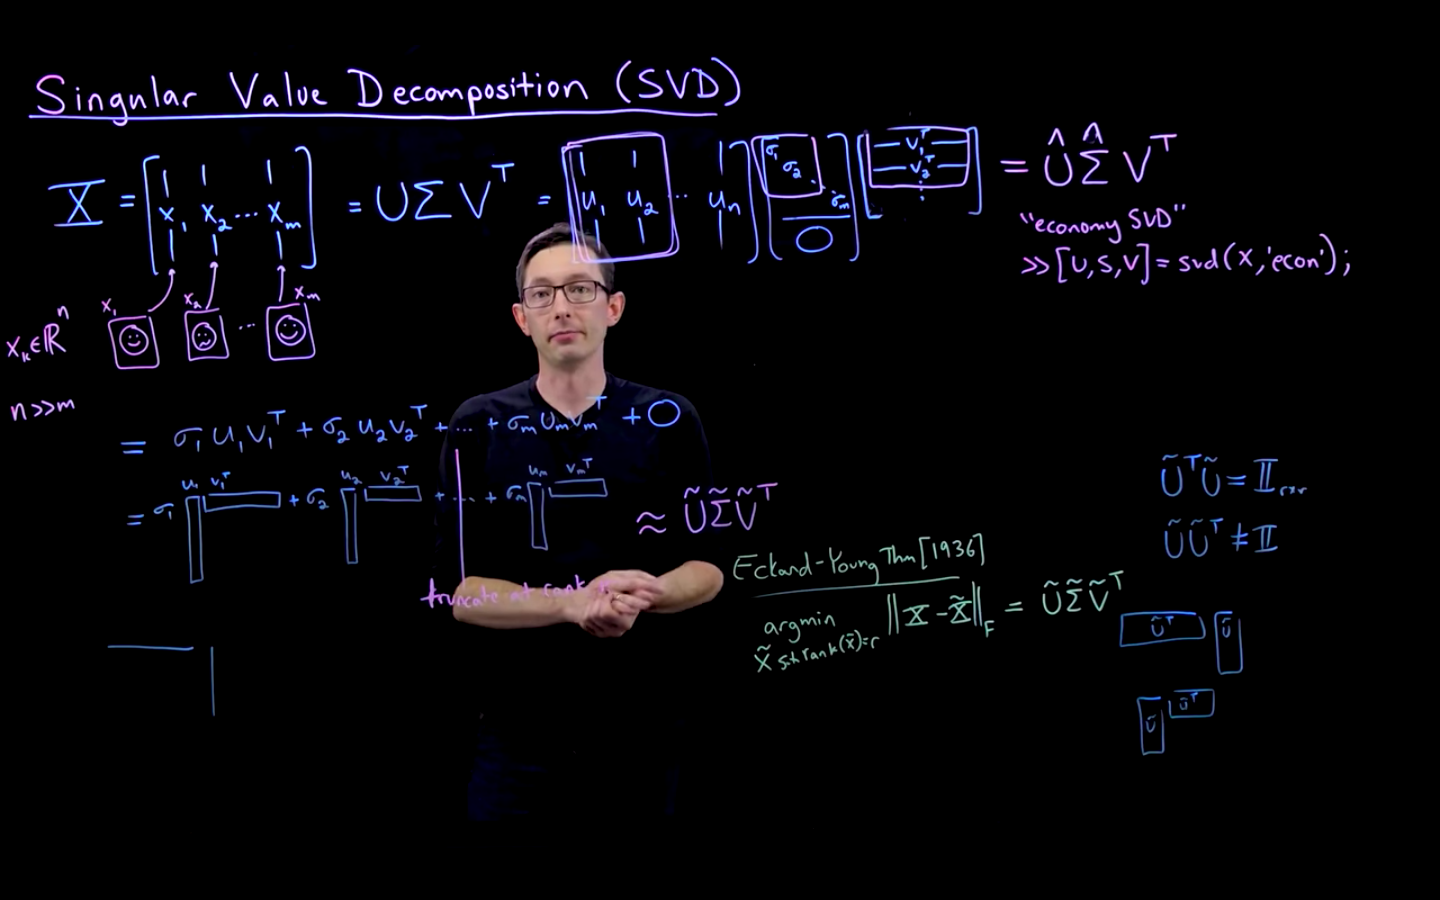 Singular Value Decomposition (SVD)
X = [x₁ x₂ ... xₘ] = UΣVᵀ = [u₁ u₂ ... uₙ] [σ₁ σ₂ ⋱ σₘ O] [v₁ᵀ v₂ᵀ ⋮] = ÛΣ̂Vᵀ
"economy SVD"
>> [U,S,V] = svd(X,'econ');
x₁ x₂ ... xₘ
xₖ∈ℝⁿ
n>>m
= σ₁u₁v₁ᵀ + σ₂u₂v₂ᵀ + ... + σₘuₘvₘᵀ + O
= σ₁ u₁ v₁ᵀ + σ₂ u₂ v₂ᵀ + ... + σₘ uₘ vₘᵀ ≈ ŨΣ̃Ṽᵀ
truncate at rank
Eckard-Young Thm [1936]
argmin ‖X - X̃‖F = ŨΣ̃Ṽᵀ
X̃ s.t. rank(X̃)=r
ŨᵀŨ = 𝕀ᵣₓᵣ
ŨŨᵀ ≠ 𝕀
Ũᵀ Ũ
Ũ Ũᵀ